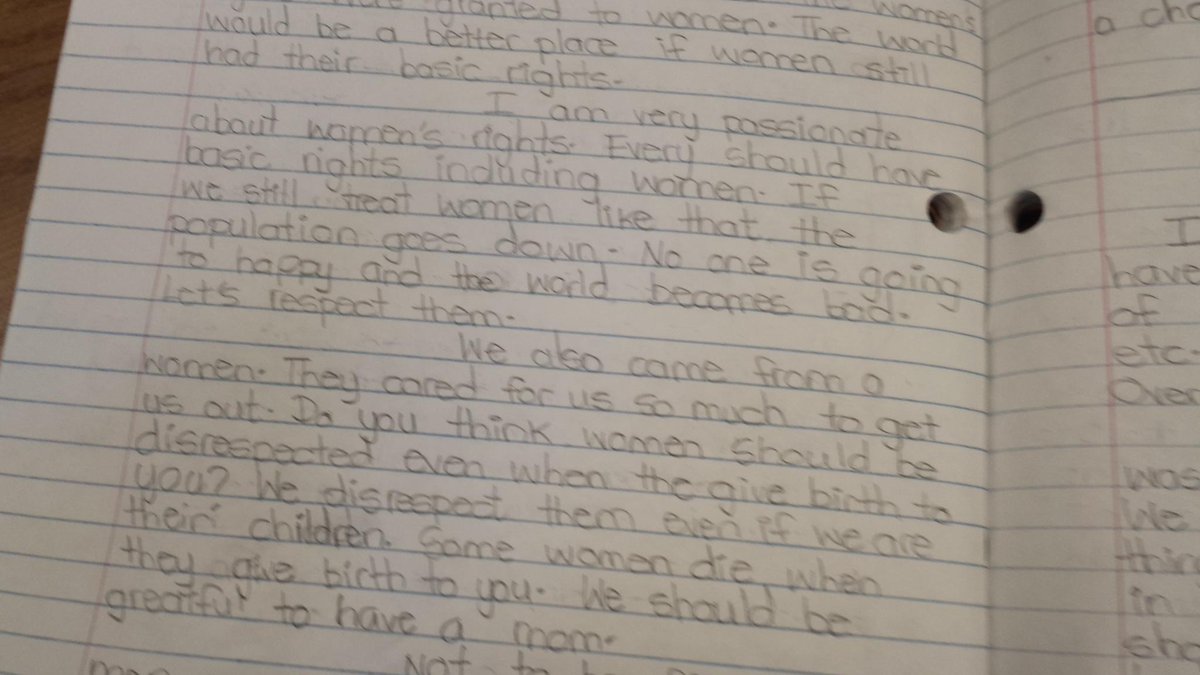 granted to women. The womens
would be a better place if women still world
had their basic rights.
I am very passionate
about women's rights. Every should have
basic rights including women. If
we still treat women like that the
population goes down. No one is going
to happy and the world becomes bad.
Let's respect them.
We also came from a
women. They cared for us so much to get
us out. Do you think women should be
disrespected even when the give birth to
you? We disrespect them even if we are
their children. Some women die when
they give birth to you. We should be
greatful to have a mom.
Not
a
I
have
of
etc.
Over
was
We
in